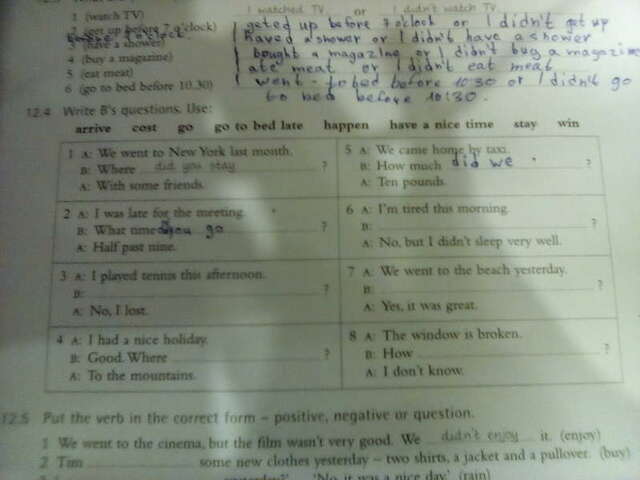 I watched TV or I didn't watch TV
1 (watch TV)
2 (get up before 7 o'clock)
I geted up before 7 o'clock or I didn't get up
before 7 o'clock.
3 (have a shower)
I haved a shower or I didn't have a shower
4 (buy a magazine)
I bought a magazine or I didn't buy a magazine
5 (eat meat)
I ate meat or I didn't eat meat
6 (go to bed before 10.30)
I went to bed before 10:30 or I didn't go
to bed before 10:30.
12.4 Write B's questions. Use:
arrive cost go go to bed late happen have a nice time stay win
1 A: We went to New York last month.
B: Where did you stay ?
A: With some friends.
2 A: I was late for the meeting.
B: What time you go ?
A: Half past nine.
3 A: I played tennis this afternoon.
B: ?
A: No, I lost.
4 A: I had a nice holiday.
B: Good. Where ?
A: To the mountains.
5 A: We came home by taxi.
B: How much did we ?
A: Ten pounds.
6 A: I'm tired this morning.
B: ?
A: No, but I didn't sleep very well.
7 A: We went to the beach yesterday.
B: ?
A: Yes, it was great.
8 A: The window is broken.
B: How ?
A: I don't know.
12.5 Put the verb in the correct form – positive, negative or question.
1 We went to the cinema, but the film wasn't very good. We didn't enjoy it. (enjoy)
2 Tim some new clothes yesterday – two shirts, a jacket and a pullover. (buy)
yesterday?' 'No, it was a nice day.' (rain)